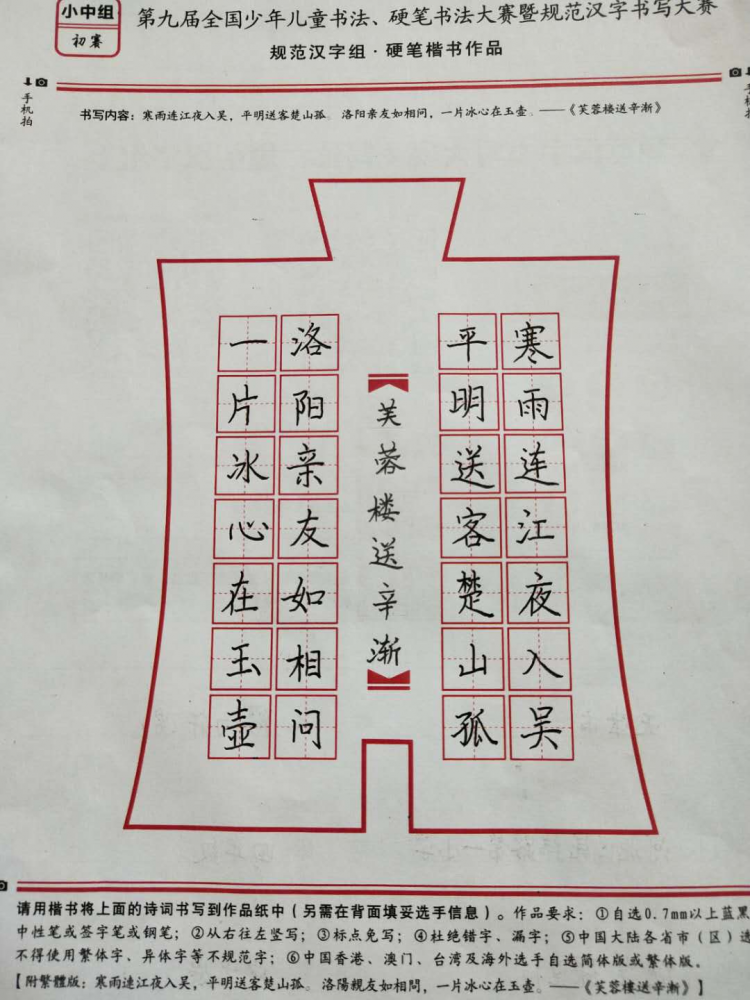 小中组
初赛
第九届全国少年儿童书法、硬笔书法大赛暨规范汉字书写大赛
规范汉字组·硬笔楷书作品
手机拍
手机拍
书写内容：寒雨连江夜入吴，平明送客楚山孤。洛阳亲友如相问，一片冰心在玉壶。——《芙蓉楼送辛渐》
寒雨连江夜入吴
平明送客楚山孤
芙蓉楼送辛渐
洛阳亲友如相问
一片冰心在玉壶
请用楷书将上面的诗词书写到作品纸中（另需在背面填妥选手信息）。作品要求：①自选0.7mm以上蓝黑
中性笔或签字笔或钢笔；②从右往左竖写；③标点免写；④杜绝错字、漏字；⑤中国大陆各省市（区）选
不得使用繁体字、异体字等不规范字；⑥中国香港、澳门、台湾及海外选手自选简体版或繁体版。
【附繁體版：寒雨連江夜入吴，平明送客楚山孤。洛陽親友如相問，一片冰心在玉壺。——《芙蓉樓送辛漸》】